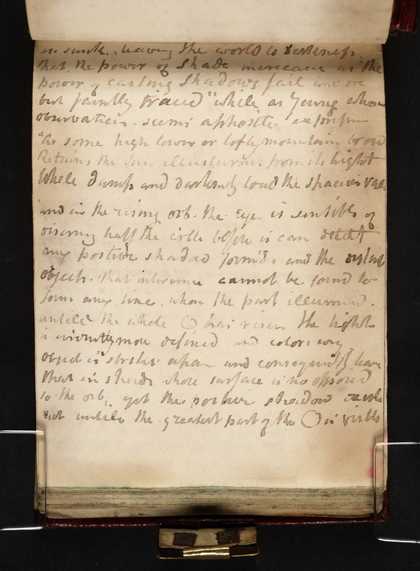 in sunk. leaving the world to darkness
that the power of shade increase as the
power of casting shadows fail and are
but faintly traced" while as Young whose
observation seems aphoristic
"As some high tower or lofty mountains brow
Retains the Sun illustrious from its hight
While damps and darkness the spacious Vale
and in the rising orb. the Eye is sensible of
viewing half the circle before it can detect
any positive shaded forms and the
objects. that intervene cannot be found to
form any line. when the part illumined.
untill the whole ○ has risen the light
is more defined and colors
object it strikes upon and consequently
that in shade whose surface is not opposed
to the orb. yet the positive shadow
not untill the greatest part of the ○ is visible